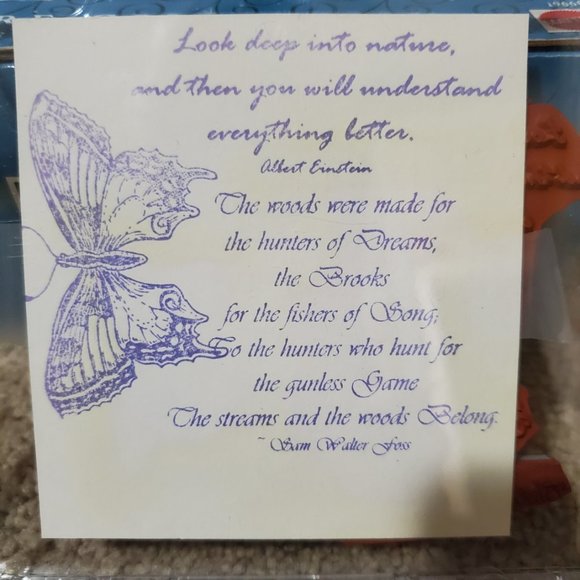 Look deep into nature,
and then you will understand
everything better.
Albert Einstein
The woods were made for
the hunters of Dreams,
the Brooks
for the fishers of Song;
To the hunters who hunt for
the gunless Game
The streams and the woods Belong.
~ Sam Walter Foss